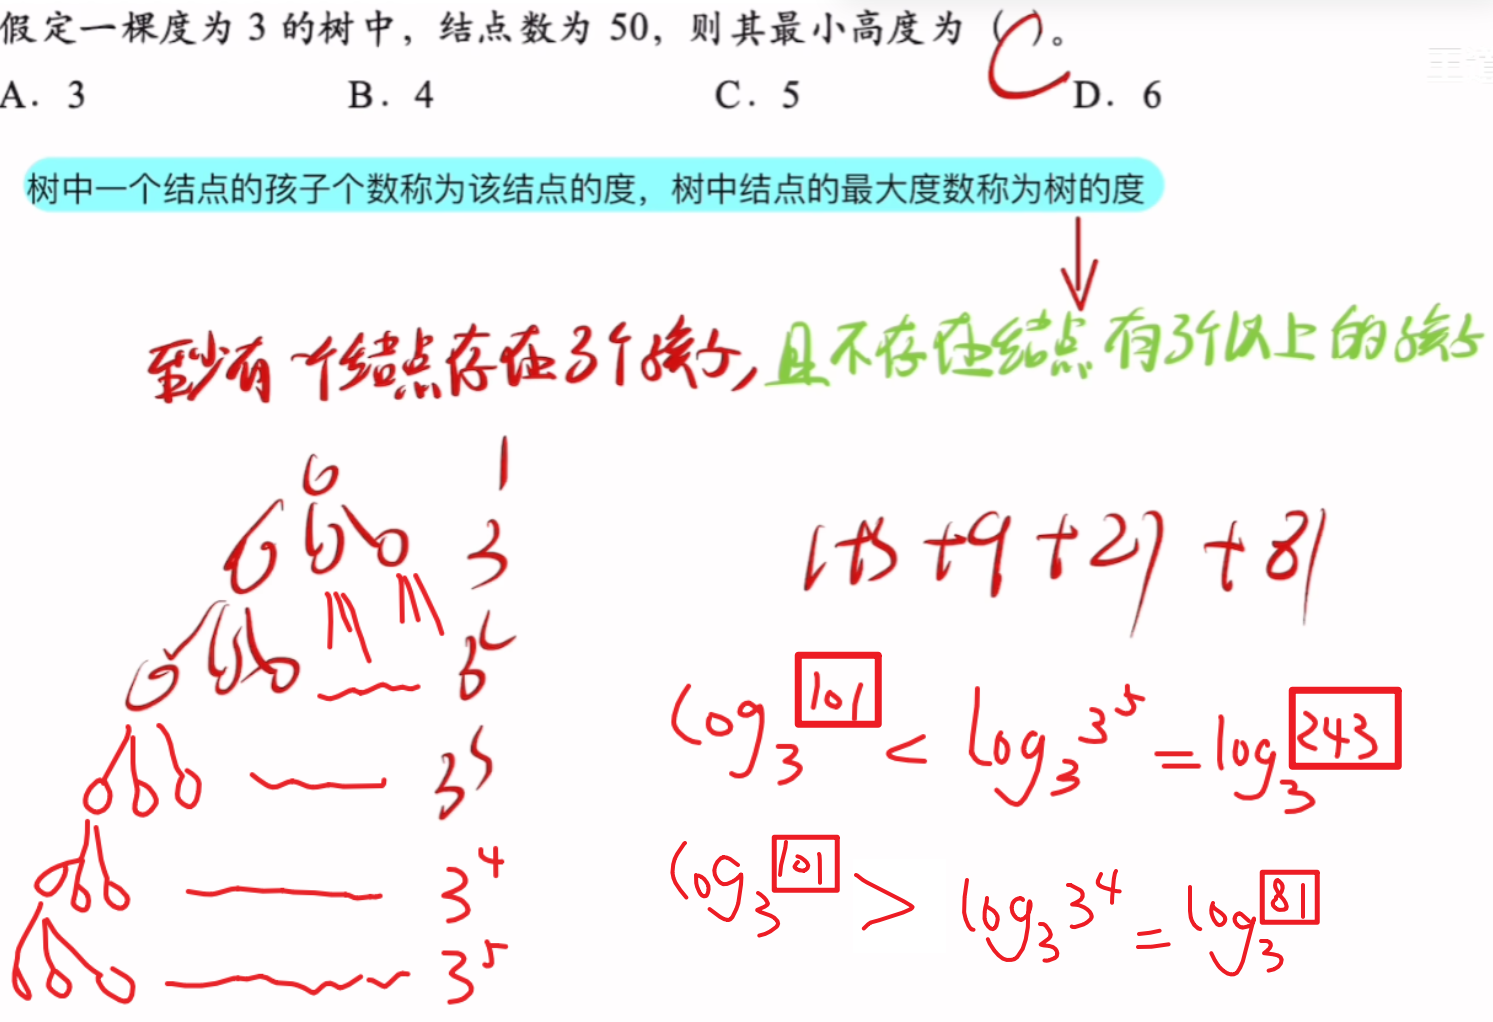 假定一棵度为 3 的树中，结点数为 50，则其最小高度为（ ）。
C
A．3 B．4 C．5 D．6
树中一个结点的孩子个数称为该结点的度，树中结点的最大度数称为树的度
至少有一个结点存在3个孩子,且不存在结点有3个以上的孩子
1
3
3²
3³
3⁴
3⁵
1+3+9+27+81
log₃101 < log₃3⁵ = log₃243
log₃101 > log₃3⁴ = log₃81